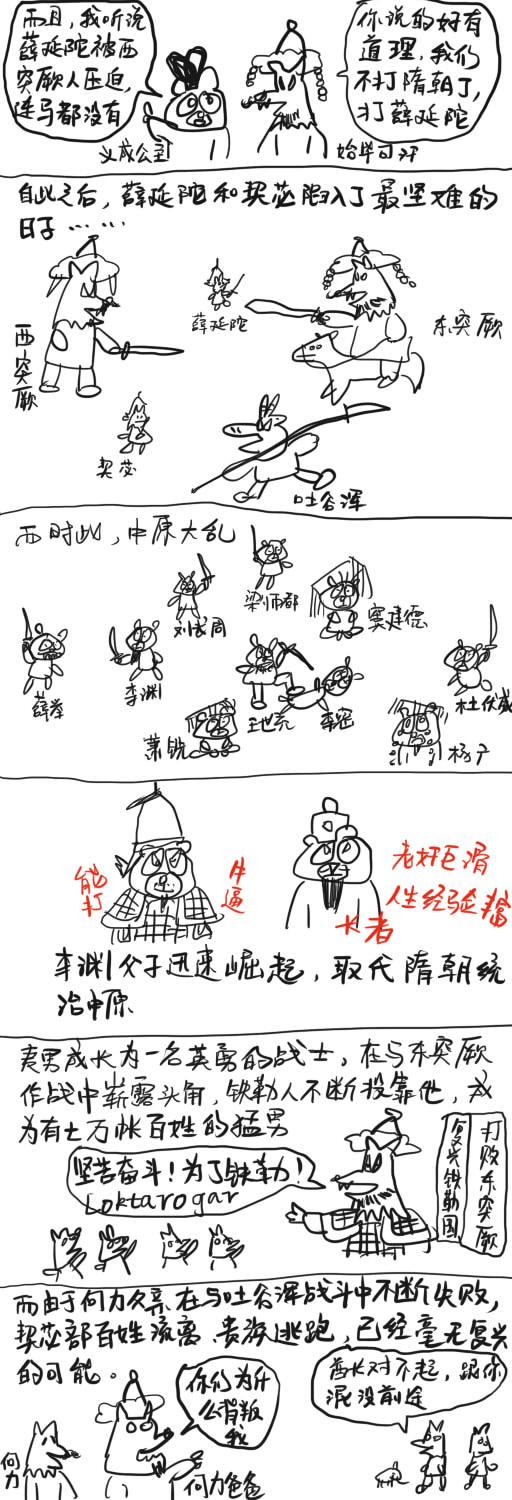 而且，我听说
薛延陀被西
突厥人压迫，
连马都没有
你说的好有
道理，我们
不打隋朝了，
打薛延陀
义成公主
始毕可汗
自此之后，薛延陀和契苾陷入了最坚难的
日子……
西突厥
薛延陀
东突厥
契苾
吐谷浑
而时此，中原大乱
梁师都
刘武周
窦建德
薛举
李渊
王世充
李密
杜伏威
萧铣
杨广
能打
牛逼
老奸巨滑
人生经验丰富
长者
李渊父子迅速崛起，取代隋朝统
治中原
夷男成长为一名英勇的战士，在与东突厥
作战中崭露头角，铁勒人不断投靠他，成
为有七万帐百姓的猛男
坚苦奋斗！为了铁勒！
Loktarogar
打败东突厥
复兴铁勒国
而由于何力父亲在与吐谷浑战斗中不断失败，
契苾部百姓流离，贵族逃跑，已经毫无复兴
的可能。
你们为什
么背叛
我
酋长对不起，跟你
混没前途
何力
何力爸爸